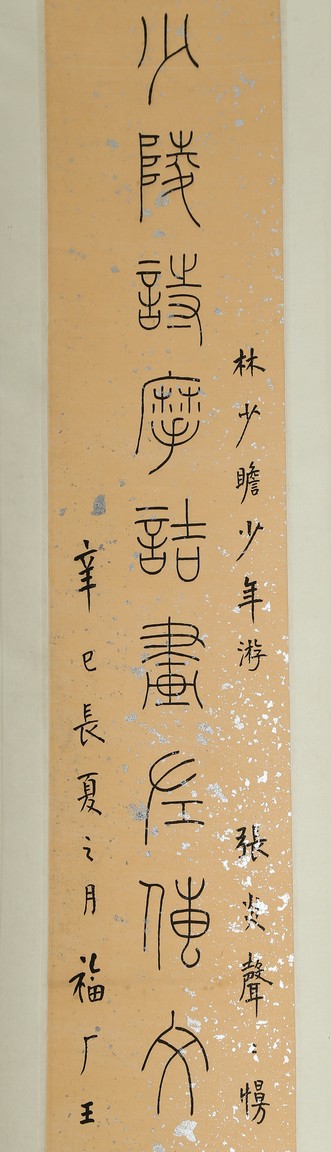 林少瞻少年游 張炎聲聲慢
少陵詩摩詰畫左傳文
辛巳長夏之月福厂王